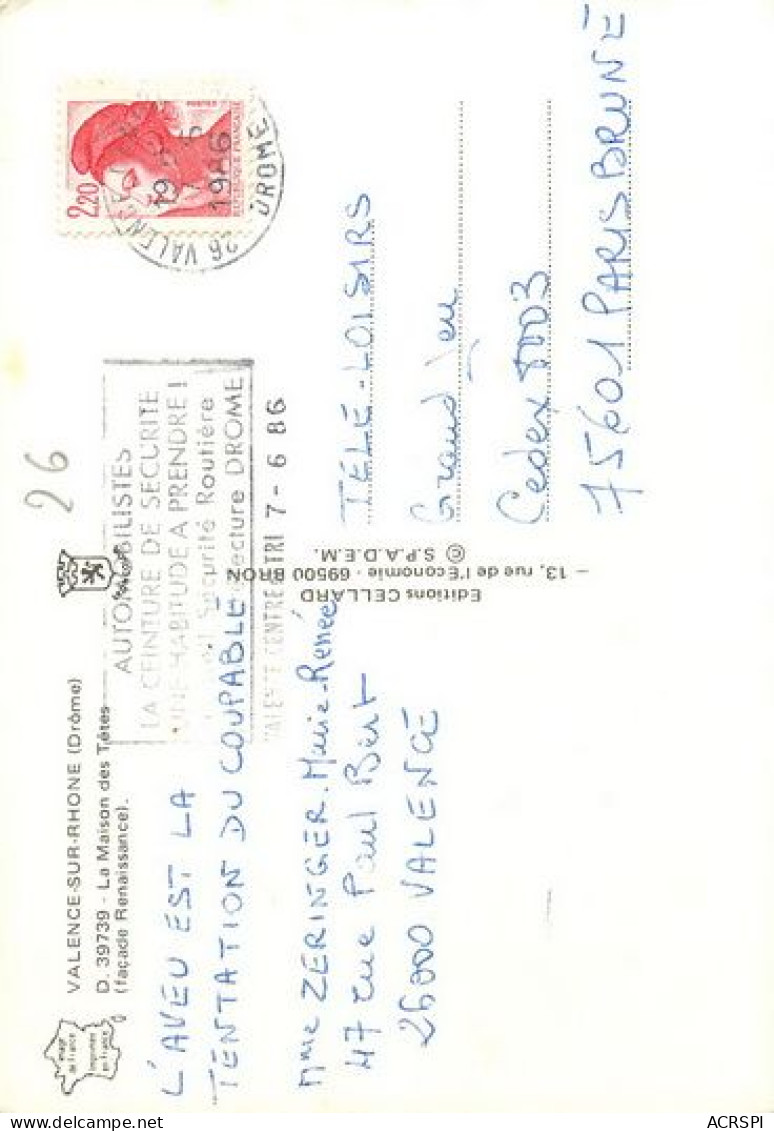 VALENCE-SUR-RHONE (Drôme)
D. 39739 - La Maison des Têtes
(façade Renaissance).
image
de France
Imprimée
en France
L'AVEU EST LA
TENTATION DU COUPABLE
Mme ZERINGER Marie-Renée
47 rue Paul Bert
26000 VALENCE
Editions CELLARD
– 13, rue de l'Économie - 69500 BRON
© S.P.A.D.E.M.
26
AUTOMOBILISTES
LA CEINTURE DE SECURITE
UNE HABITUDE A PRENDRE !
Sécurité Routière
DROME
VALENCE CENTRE TRI 7 - 6 86
26 VALENCE
DROME
19 H
7 - 6
1986
2,20
POSTES
REPUBLIQUE FRANÇAISE
TELE-LOISIRS
Grand Jeu
Cedex
75601 PARIS BRUNE
ACRSPI